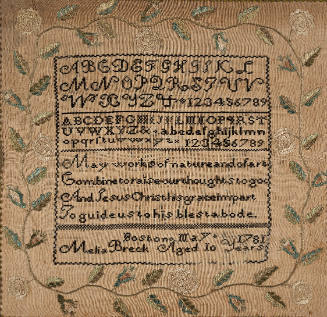 ABCDEFGHIJKL
MNOPQRSTUV
WXYZ 123456789
ABCDEFGHIJKLMNOPQRST
UVWXYZ& abcdefghijklmn
opqrſstuvwxyz 123456789
May works of nature and of art
Combine to raise our thoughts to god
And Jesus Christ his grace impart
To guide us to his blest abode
Boston May 1781
Melia Breck Aged 10 Years